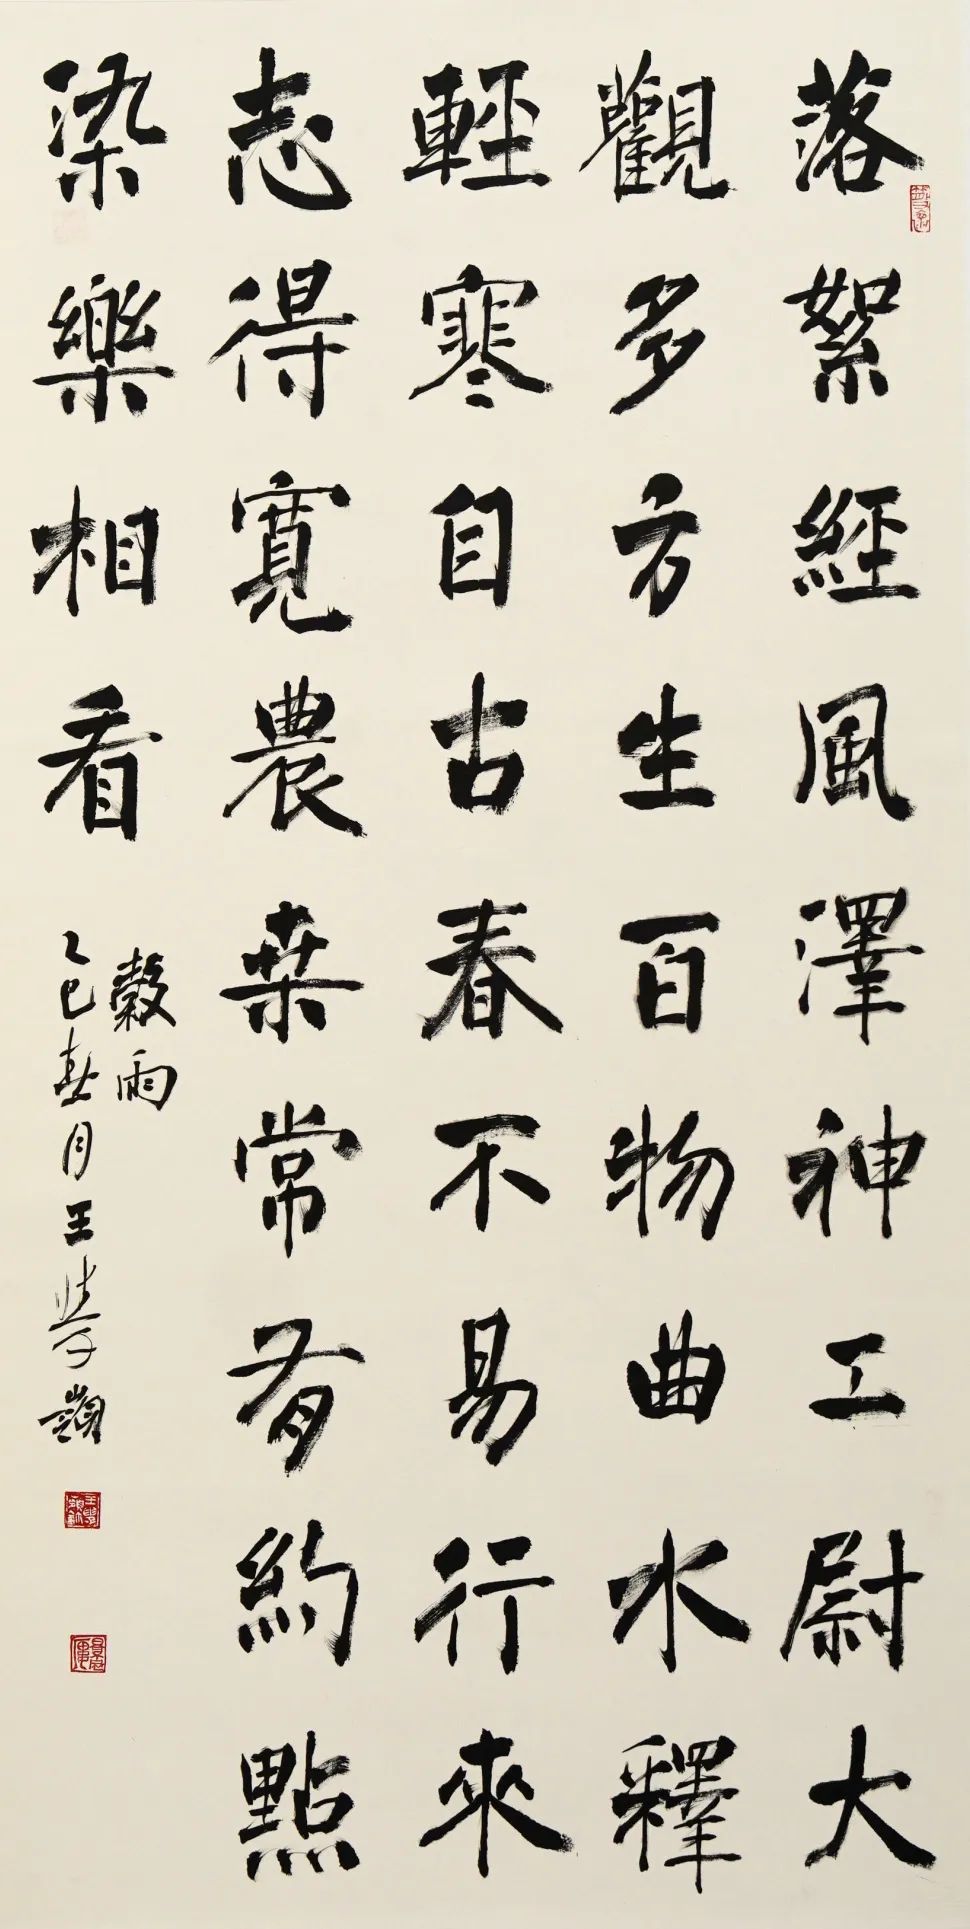 落絮經風澤神工尉大
觀多方生百物曲水釋
輕寒自古春不易行來
志得寬農桒常有約點
染樂相看
穀雨
乙巳春月王學嶺